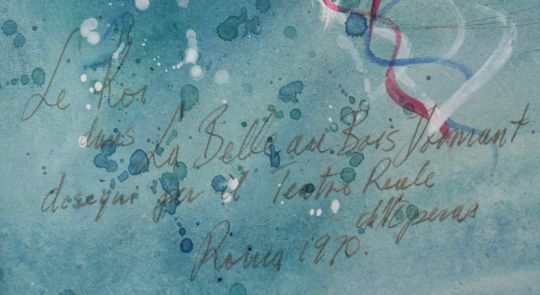 Le Roi
dans La Belle au Bois Dormant.
per il Teatro Reale
Roma 1970.